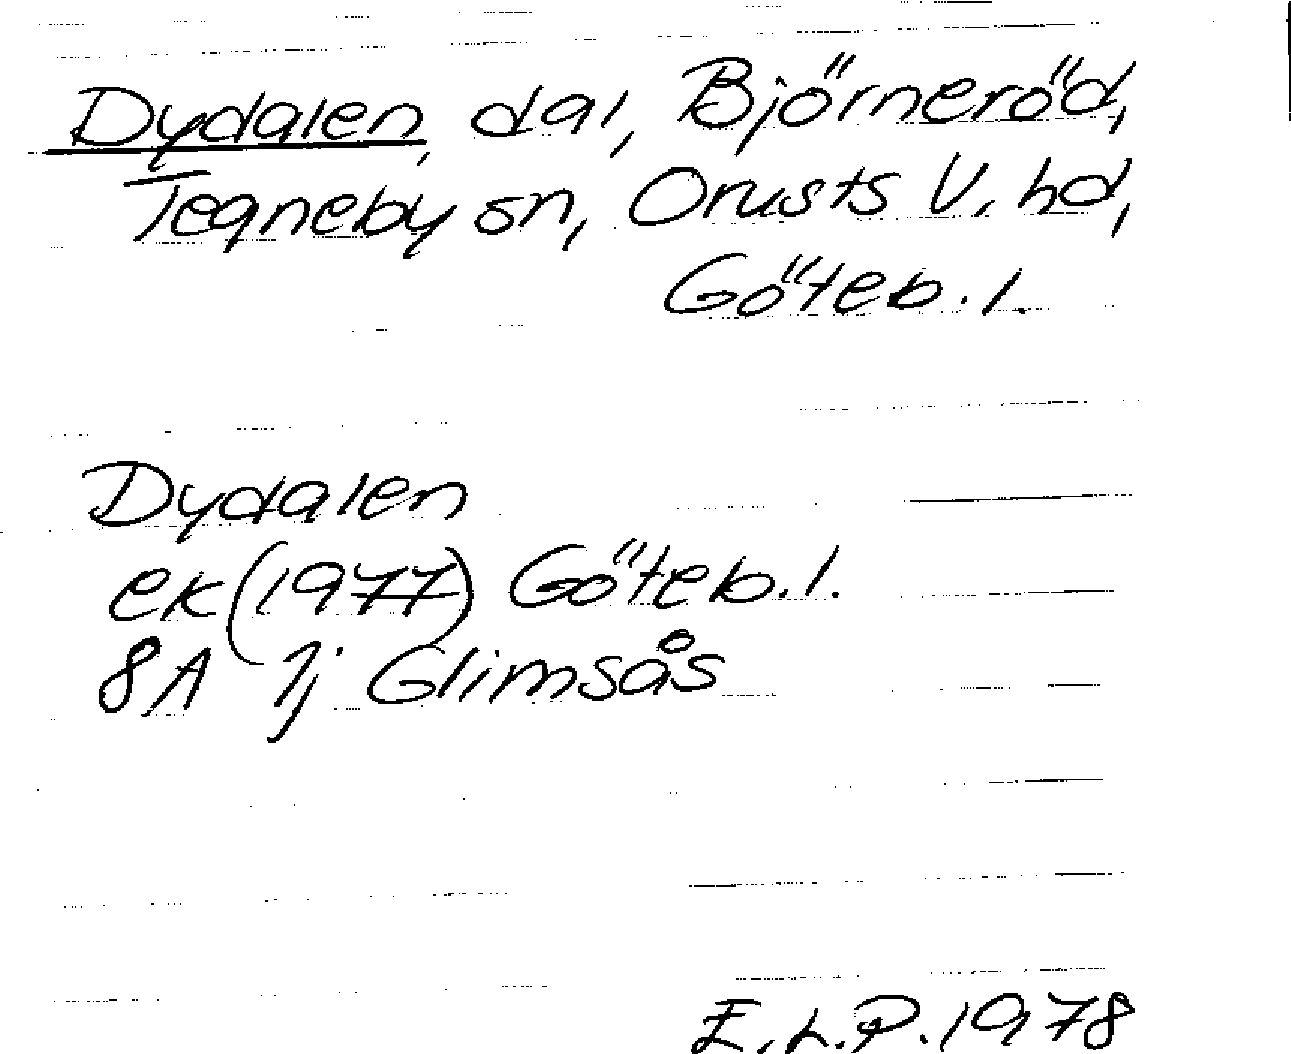 Dydalen, dal, Björneröd,
Tegneby sn, Orusts V. hd,
Göteb. l.
Dydalen
ek (1977) Göteb. l.
8A 7j Glimsås
E.L.P. 1978